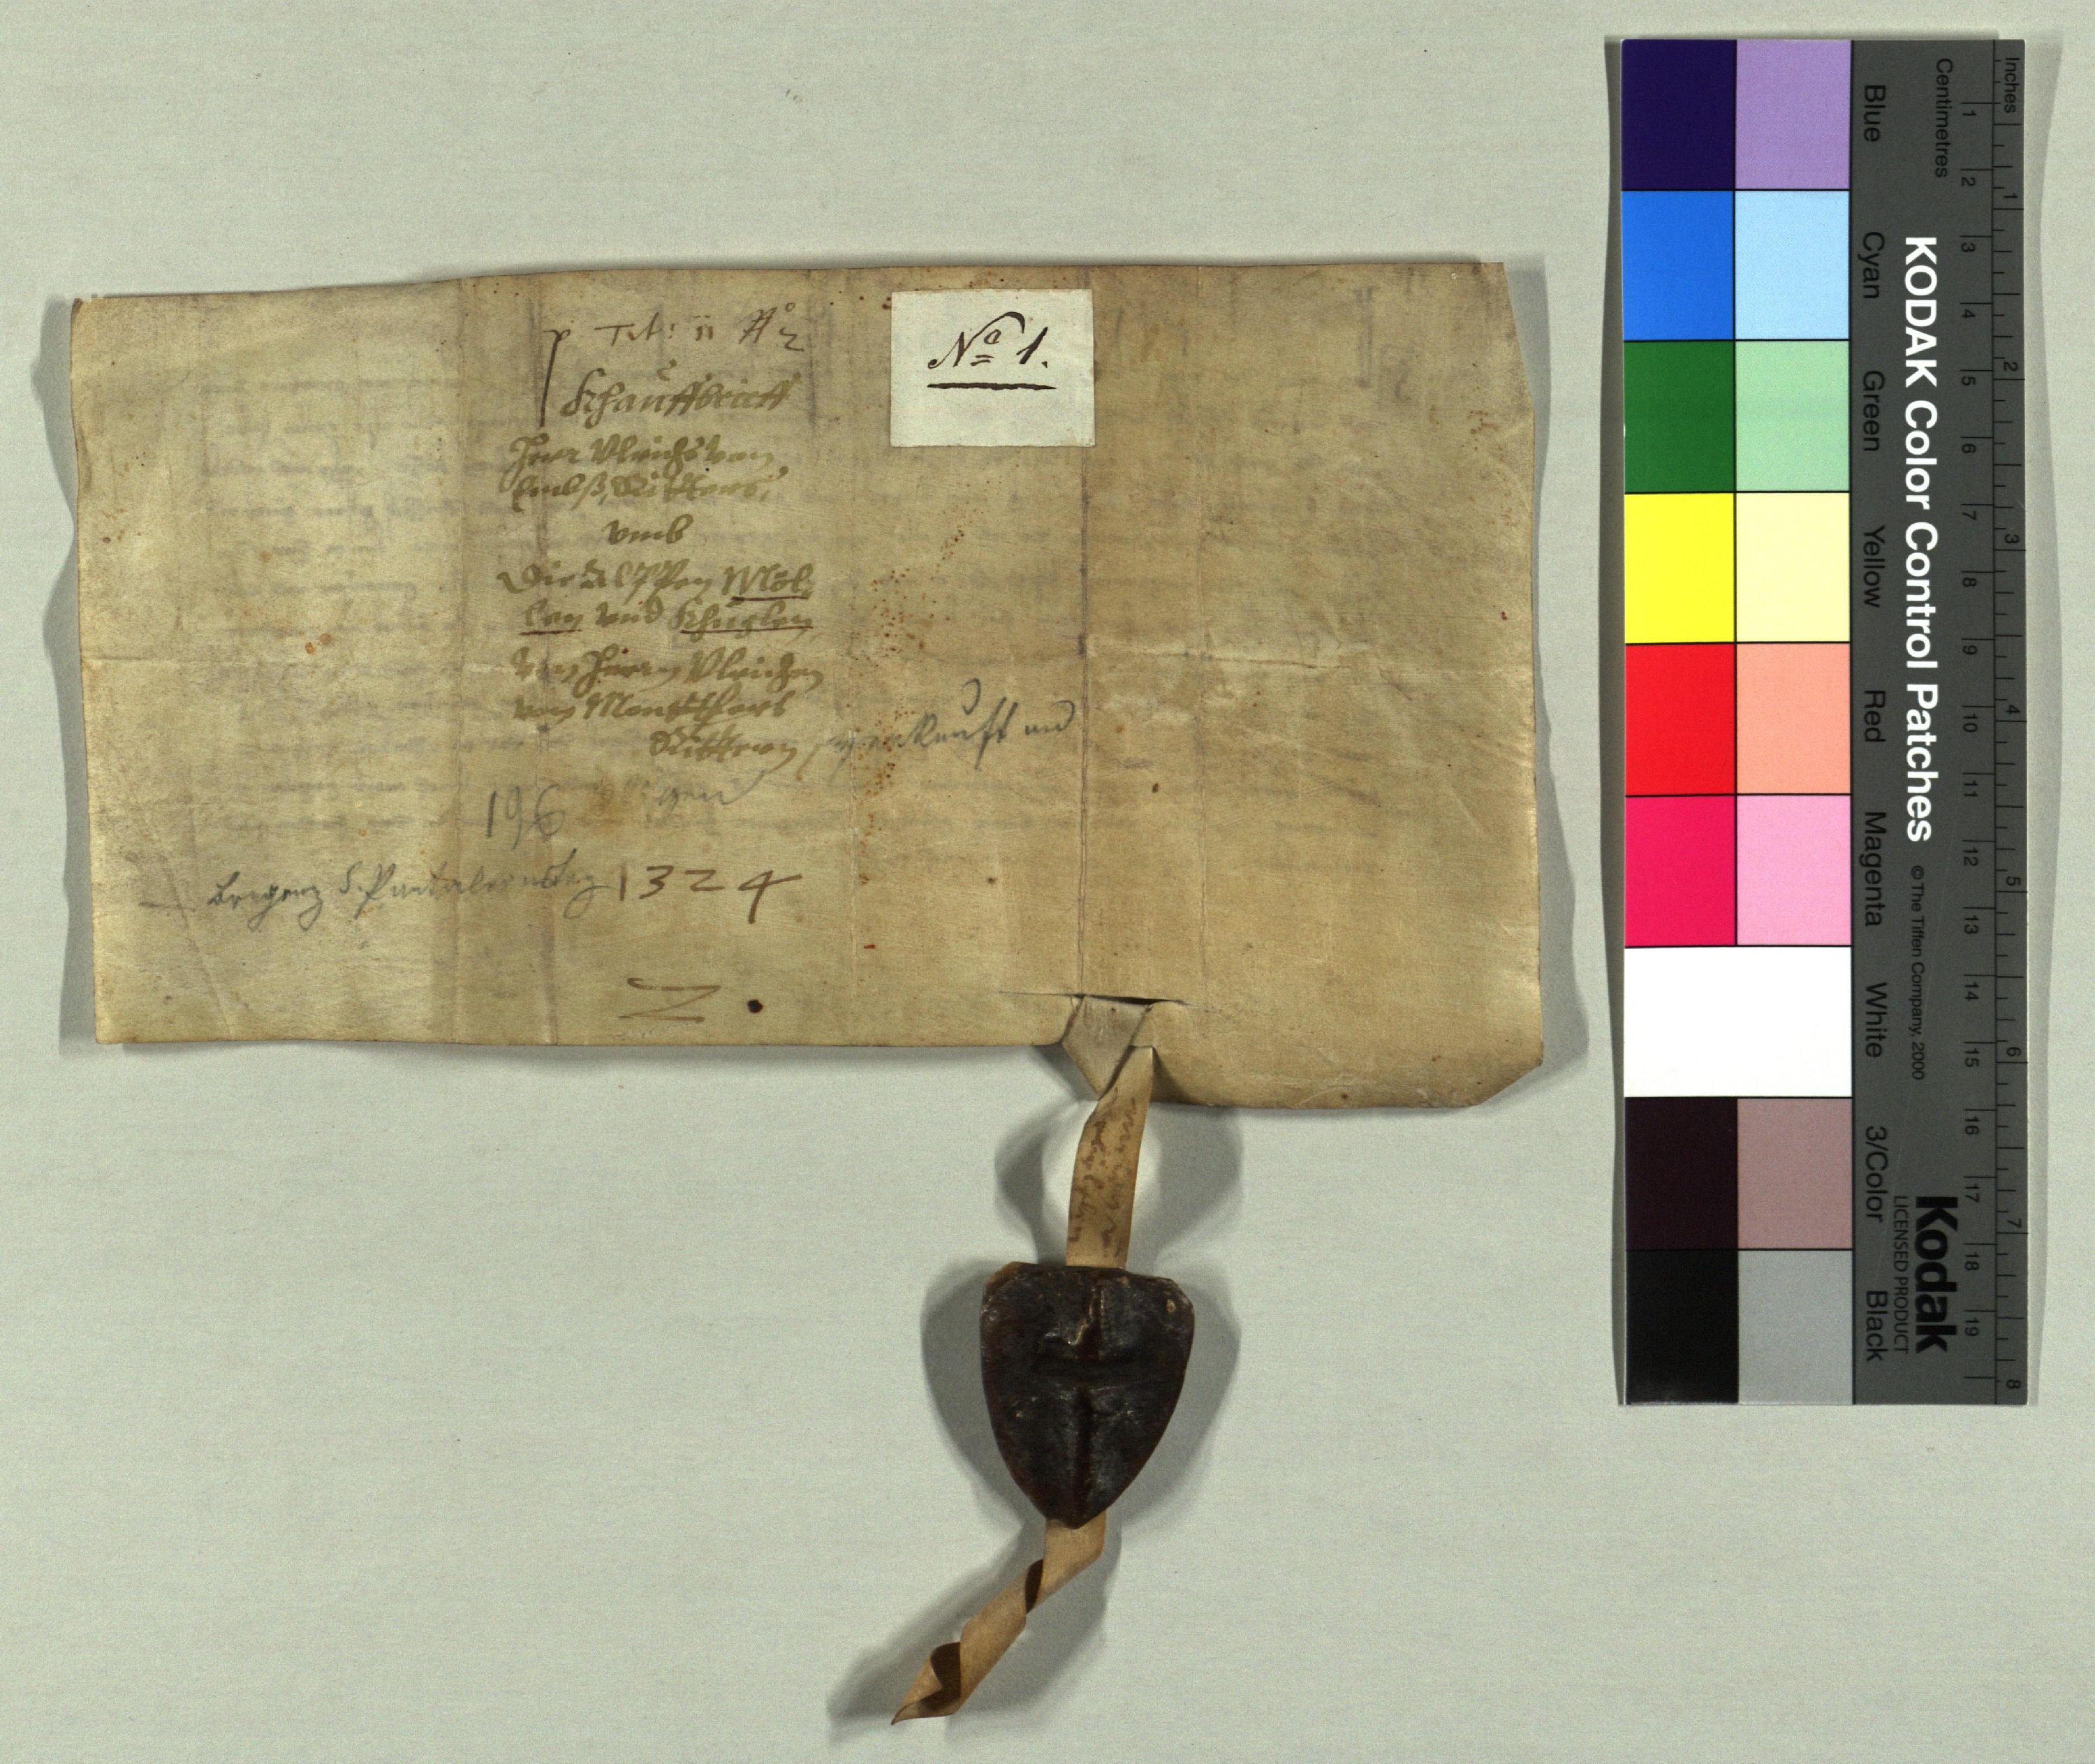 p Tit: ii No 2
No 1.
Khauffbrieff
Herr Vlrichs von
Embß, Ritters,
vmb
Die Alppen Möl,
len vnd Khuglen
von Herrn Vlrichen
von Montfhort
Rittern verkauft und
196
Bregenz S. Pantaleonstag 1324
Z
Inches
Centimetres
1 2 3 4 5 6 7 8 9 10 11 12 13 14 15 16 17 18 19
1 2 3 4 5 6 7 8
KODAK Color Control Patches
© The Tiffen Company, 2000
Kodak
LICENSED PRODUCT
Blue Cyan Green Yellow Red Magenta White 3/Color Black